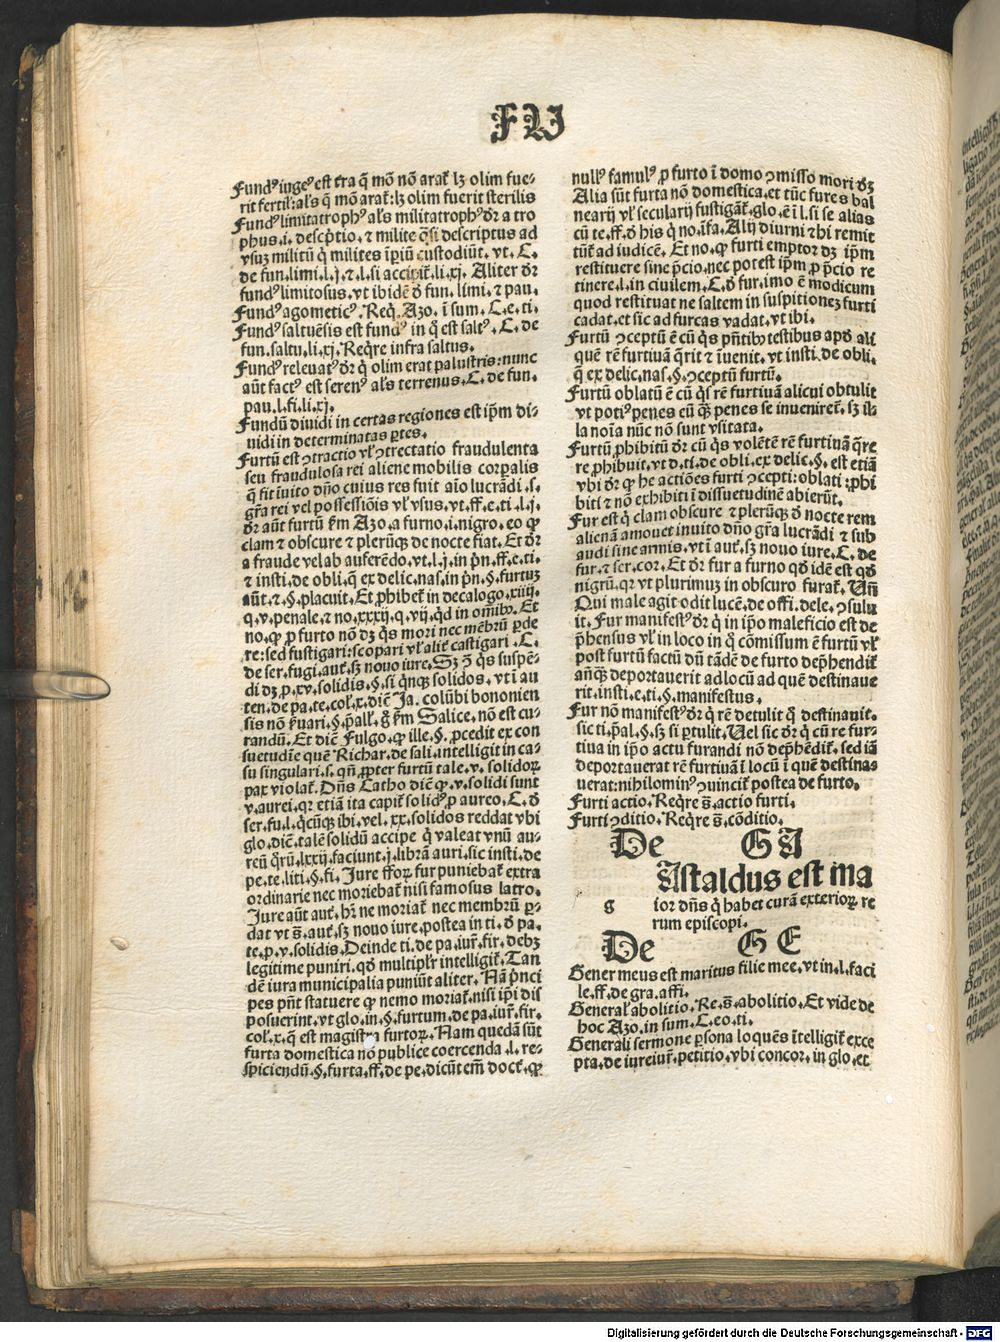 FU
Fundꝰ iugeꝰ est tra q̄ mō nō arat᷑ lꝫ olim fue⸗
rit fertil᷑: al᷑s q̄ mō arat᷑: lꝫ olim fuerit sterilis
Fundꝰ limitatrophꝰ al᷑s militatrophꝰ dr̄ a tro
phus .i. descp̄tio, ⁊ milite q̄si descriptus ad
vsuꝫ militū q̄ milites ip̄iū custodiūt. vt. C.
de fun. limi. l. j. ⁊ l. si acciꝑit᷑. li. xj. Aliter dr̄
fundꝰ limitosus. vt ibidē ō fun. limi. ⁊ pau.
Fundꝰ agometicꝰ. Req̄. Azo. ī sum. C. e. ti.
Fundꝰ saltuēsis est fundꝰ in q̄ est saltꝰ. C. de
fun. saltu. li. xj. Req̄re infra saltus.
Fundꝰ releuatꝰ dr̄ q̄ olim erat palustris: nunc
aūt factꝰ est serenꝰ al᷑s terrenus. C. de fun.
pau. l. fi. li. xj.
Fundū diuidi in certas regiones est ip̄m di⸗
uidi in determinatas ꝑtes.
Furtū est ꝯtractio vl᷑ ꝯtrectatio fraudulenta
seu fraudulosa rei aliene mobilis corpalis
q̄ fit iuito dn̄o cuius res fuit aīo lucrādi .s.
gr̄a rei vel possessiōis vl᷑ vsus. vt. ff. e. ti. l. j.
dr̄ aūt furtū ẜm Azo. a furno .i. nigro. eo ꝙ
clam ⁊ obscure ⁊ plerūqꝫ de nocte fiat. Et dr̄
a fraude vel ab auferēdo. vt. l. j. in pn̄. ff. e. ti.
⁊ insti. de obli. q̄ ex delic. nas. in pn̄. §. furtuꝫ
aūt. ⁊ §. placuit. Et ꝓhibet᷑ in decalogo. xiiij.
q. v. penale. ⁊ no. xxxij. q. vij. qd̄ in om̄ibꝰ. Et
no. ꝙ p furto nō dꝫ q̄s mori nec mēbrū ꝑde
re: sed fustigari: scopari vl᷑ alit᷑ castigari. C.
de ser. fugi. aut᷑. sꝫ nouo iure. Sꝫ ꝓ q̄s suspē⸗
di dꝫ ꝓ. xv. solidis. §. si q̄nqꝫ solidos. vt ī au
ten. de pa. te. col᷑. x. diē᷑ Ja. colūbi bononien
sis nō ẜuari. §. p̄all᷑. ḡ ẜm Salice. nō est cu⸗
randū. Et diē᷑ Fulgo. ꝙ ille. §. pcedit ex con
suetudīe quē Richar. de sali. intelligit in ca⸗
su singulari. s. qn̄ ꝓpter furtū tale. v. solidoꝝ
pax violat᷑. Dn̄s Catho diē᷑ ꝙ. v. solidi sunt
v. aurei. qꝛ etiā ita capit᷑ solidꝰ ꝓ aureo. C. ō
ser. fu. l. q̄cūqꝫ ibi. vel. xx. solidos reddat vbi
glo. diē᷑. talē solidū accipe q̄ valeat vnū au⸗
reū q̄rū. lxxij. faciunt. j. librā auri. sic insti. de
pe. te. liti. §. fi. Jure ffoꝝ fur puniebat᷑ extra
ordinarie nec moriebat᷑ nisi famosus latro.
Jure aūt aut᷑. hr̄ ne moriat᷑ nec membrū ꝑ⸗
dat vt s̄. aut᷑. sꝫ nouo iure. postea in ti. ō pa.
te. ꝓ. v. solidis. Deinde ti. de pa. iur᷑. fir. debꝫ
legitime puniri. qd̄ multipl᷑r intelligit᷑. Tan
dē iura municipalia puniūt aliter. Nā p̄nci
pes pn̄t statuere ꝙ nemo moriat᷑. nisi ip̄i dis
posuerint. vt glo. in. §. furtum. de pa. iur᷑. fir.
col᷑. x. q̄ est magistra furtoꝝ. Nam quedā sūt
furta domestica nō publice coercenda. l. re⸗
spiciendū. §. furta. ff. de pe. dicūt em̄ doct᷑. ꝙ
nullꝰ famulꝰ ꝓ furto ī domo ꝯmisso mori dꝫ
Alia sūt furta nō domestica. et tūc fures bal
nearij vl᷑ secularij fustigāt᷑. glo. ē ī l. si se alias
cū te. ff. ō his q̄ no. īfa. Alij diurni ⁊ hi remit
tūt᷑ ad iudicē. Et no. ꝙ furti emptor dꝫ ip̄m
restituere sine p̄cio. nec potest ip̄m ꝓ p̄cio re
tinere. l. in ciuilem. C. ō fur. imo ē modicum
quod restituat ne saltem in suspitioneꝫ furti
cadat. et sic ad furcas vadat. vt ibi.
Furtū ꝯceptū ē cū q̄s pn̄tibꝰ testibus apō ali
quē rē furtiuā q̄rit ⁊ īuenit. vt insti. de obli.
q̄ ex delic. nas. §. ꝯceptū furtū.
Furtū oblatū ē cū q̄s rē furtiuā alicui obtulit
vt potiꝰ penes eū q̄ꝫ penes se inueniret᷑. sꝫ il⸗
la noīa nūc nō sunt vsitata.
Furtū ꝓhibitū dr̄ cū q̄s volētē rē furtiuā q̄re
re ꝓhibuit. vt d. ti. de obli. ex delic. §. est etiā
vbi dr̄ ꝙ he actiōes furti ꝯcepti: oblati: ꝓhi
biti ⁊ nō exhibiti ī dissuetudinē abierūt.
Fur est q̄ clam obscure ⁊ plerūqꝫ ō nocte rem
alienā amouet inuito dn̄o gr̄a lucrādi ⁊ sub
audi sine armis. vt ī aut᷑. sꝫ nouo iure. C. de
fur. ⁊ ser. cor. Et dr̄ fur a furno qd̄ idē est qd̄
nigrū. qꝛ vt plurimuꝫ in obscuro furat᷑. Vn̄
Qui male agit odit lucē. de offi. dele. ꝯsulu
it. Fur manifestꝰ dr̄ q̄ in ip̄o maleficio est de
p̄hensus vl᷑ in loco in q̄ cōmissum ē furtū vl᷑
post furtū factū dū tādē de furto dep̄hendit᷑
an̄qꝫ deportauerit ad locū ad quē destinaue
rit. insti. e. ti. §. manifestus.
Fur nō manifestꝰ dr̄ q̄ rē detulit q̄ destinauit.
sic ti. p̄al. §. sꝫ si ꝑtulit. Uel sic dr̄ q̄ cū re fur⸗
tiua in ip̄o actu furandi nō dep̄hēdit᷑. sed iā
deportauerat rē furtiuā ī locū ī quē destina⸗
uerat: nihilominꝰ ꝯuincit᷑ postea de furto.
Furti actio. Req̄re s̄. actio furti.
Furti ꝯditio. Req̄re s̄. cōditio.
De GA
Astaldus est ma
g
ior dn̄s q̄ habet curā exterioꝝ re
rum episcopi.
De GE
Gener meus est maritus filie mee. vt in. l. faci
le. ff. de gra. affi.
General᷑ abolitio. Re. s̄. abolitio. Et vide de
hoc Azo. in sum. C. eo. ti.
Generali sermone ꝑsona loquēs ītelligit᷑ exce
pta. de iureiur᷑. petitio. vbi concor. in glo. et
Digitalisierung gefördert durch die Deutsche Forschungsgemeinschaft - DFG